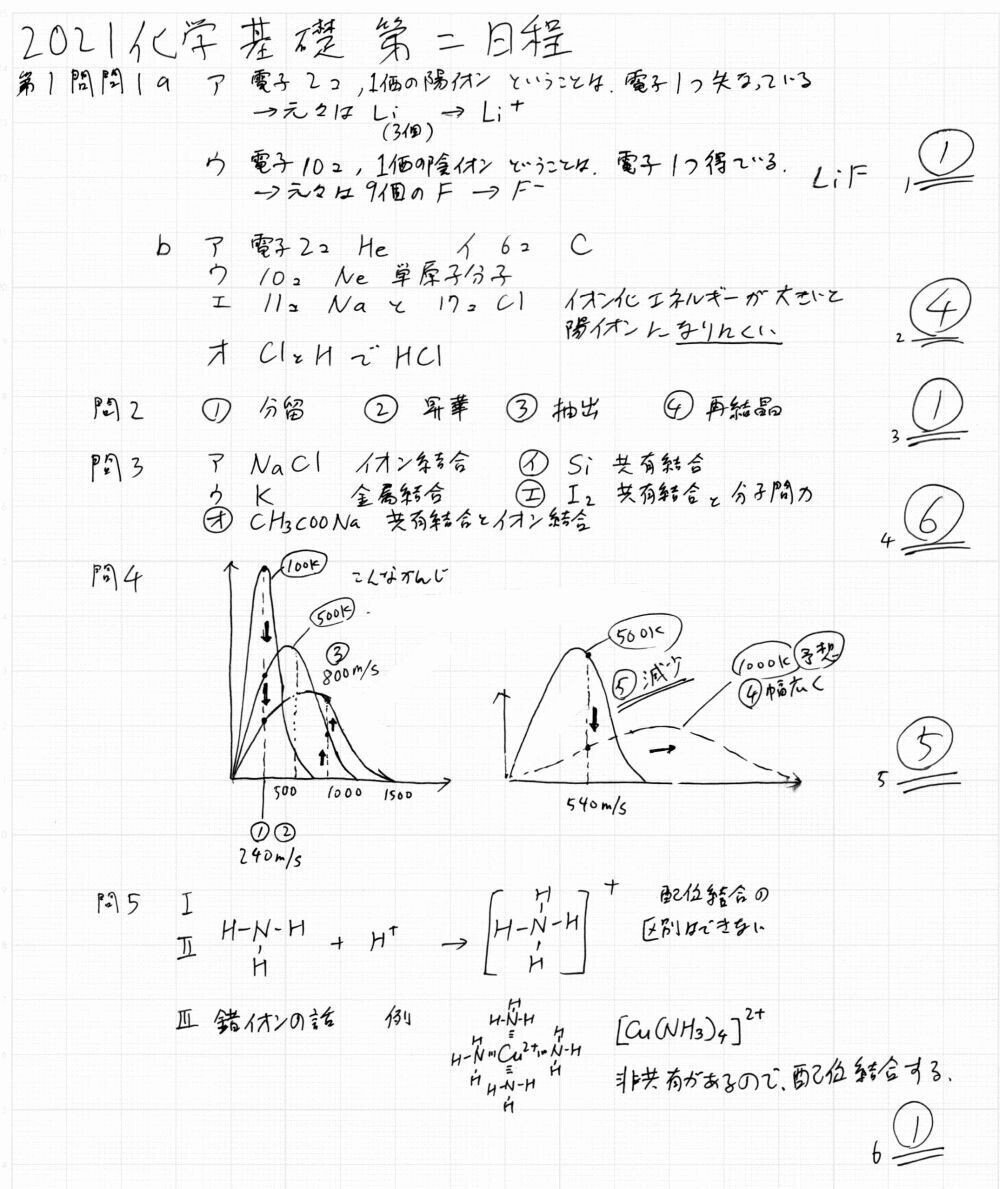 2021化学基礎 第二日程
第1問問1a ア 電子2コ,1価の陽イオン ということは、電子1つ失なっている
→元々は Li → Li⁺
(3個)
ウ 電子10コ,1価の陰イオン ということは、電子1つ得ている、
→元々は9個のF → F⁻
LiF 1 ①
b ア 電子2コ He イ 6コ C
ウ 10コ Ne 単原子分子
エ 11コ Naと 17コ Cl イオン化エネルギーが大きいと
陽イオンになりにくい
オ ClとHでHCl
2 ④
問2 ① 分留 ② 昇華 ③ 抽出 ④ 再結晶
3 ①
問3 ア NaCl イオン結合 イ Si 共有結合
ウ K 金属結合 エ I₂ 共有結合と分子間力
オ CH3COONa 共有結合とイオン結合
4 ⑥
問4 100K こんなかんじ
500K
③
800m/s
500 1000 1500
① ②
240m/s
500K
⑤減少
1000K 予想
④幅広く
540m/s
5 ⑤
問5 I
II H-N-H + H⁺ → [H-N-H]⁺
H H
H
配位結合の
区別はできない
III 錯イオンの話 例
H
H-N-H
H H
H-N Cu²⁺ N-H
H H
H-N-H
H
[Cu(NH3)4]²⁺
非共有があるので、配位結合する、
6 ①